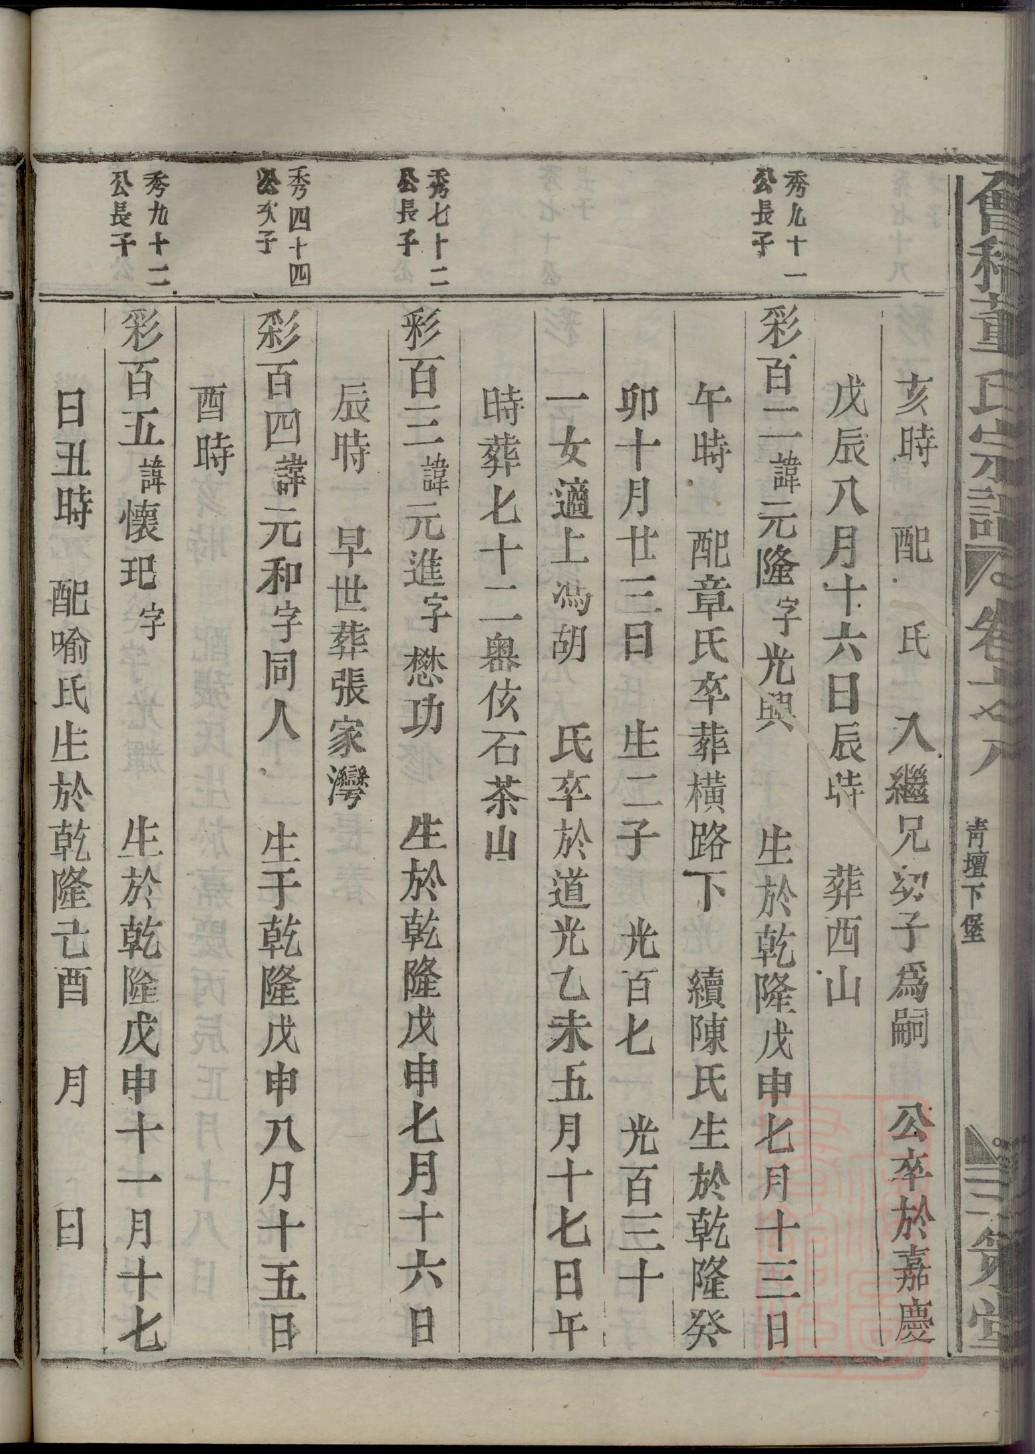 會稽董氏宗譜
卷之八
青壇下堡
三策堂
亥時 配 氏 入繼兄幼子爲嗣 公卒於嘉慶
戊辰八月十六日辰時 葬西山
秀九十一
公長子
彩百二諱元隆字光興 生於乾隆戊申七月十三日
午時 配章氏卒葬橫路下 續陳氏生於乾隆癸
卯十月廿三日 生二子 光百七 光百三十
一女適上馮胡 氏卒於道光乙未五月十七日午
時葬七十二㠗伭石茶山
秀七十二
公長子
彩百三諱元進字懋功 生於乾隆戊申七月十六日
辰時 早世葬張家灣
秀四十四
公次子
彩百四諱元和字同人 生于乾隆戊申八月十五日
酉時
秀九十二
公長子
彩百五諱懷玘字 生於乾隆戊申十一月十七
日丑時 配喻氏生於乾隆己酉 月 日